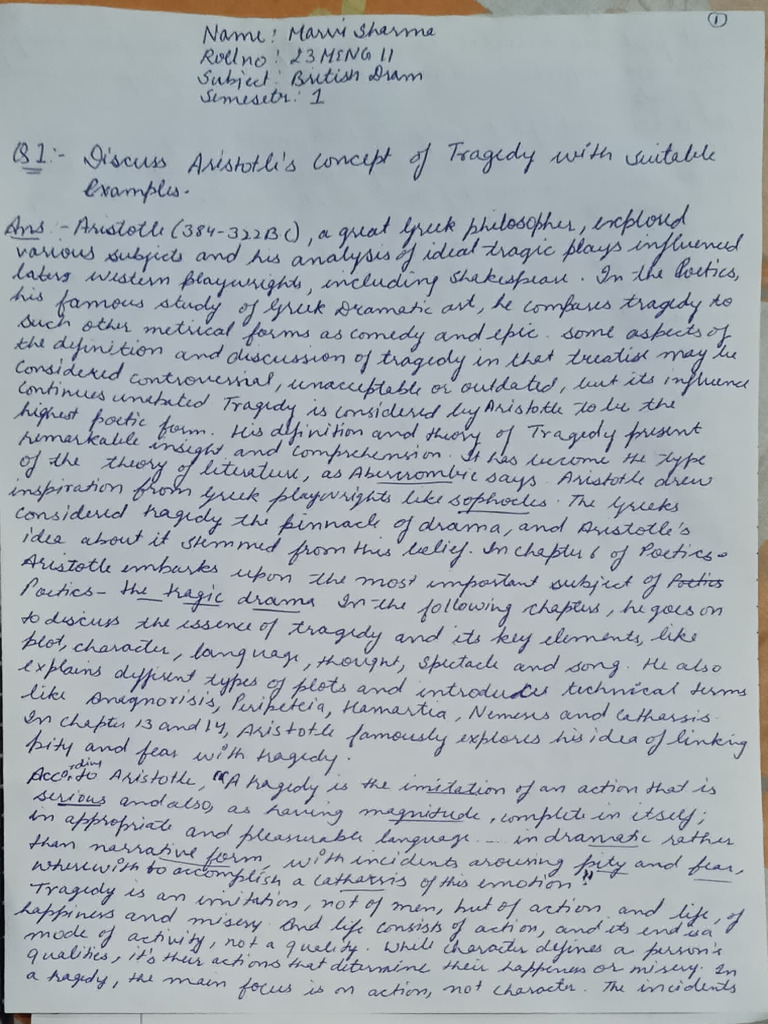 1
Name: Marvi Sharma
Roll no: 23MENG11
Subject: British Dram
Semesetr: 1
Q1:- Discuss Aristotle's concept of Tragedy with suitable
examples.
Ans:- Aristotle (384-322BC), a great Greek philosopher, explored
various subjects and his analysis of ideal tragic plays influenced
later western playwrights, including Shakespeare. In the Poetics,
his famous study of Greek Dramatic art, he compares tragedy to
such other metrical forms as comedy and epic. some aspects of
the definition and discussion of tragedy in that treatise may be
considered controversial, unacceptable or outdated, but its influence
continues unabated Tragedy is considered by Aristotle to be the
highest poetic form. His definition and theory of Tragedy present
remarkable insight and comprehension. It has become the type
of the theory of literature, as Abercrombie says. Aristotle drew
inspiration from Greek playwrights like sophocles. The Greeks
considered tragedy the pinnacle of drama, and Aristotle's
idea about it stemmed from this belief. In chapter 6 of Poetics-
Aristotle embarks upon the most important subject of Poetics
Poetics- the tragic drama In the following chapters, he goes on
to discuss the essence of tragedy and its key elements, like
plot, character, language, thought, spectacle and song. He also
explains different types of plots and introduces technical terms
like Anagnorisis, Peripeteia, Hamartia, Nemesis and catharsis.
In chapter 13 and 14, Aristotle famously explores his idea of linking
pity and fear with tragedy.
According to Aristotle, "A tragedy is the imitation of an action that is
serious and also, as having magnitude, complete in itself;
in appropriate and pleasurable language ... in dramatic rather
than narrative form, with incidents arousing pity and fear,
wherewith to accomplish a catharsis of this emotion."
Tragedy is an imitation, not of men, but of action and life, of
happiness and misery. And life consists of action, and its end is a
mode of activity, not a quality. While character defines a person's
qualities, it's their actions that determine their happiness or misery. In
a tragedy, the main focus is on action, not character. The incidents